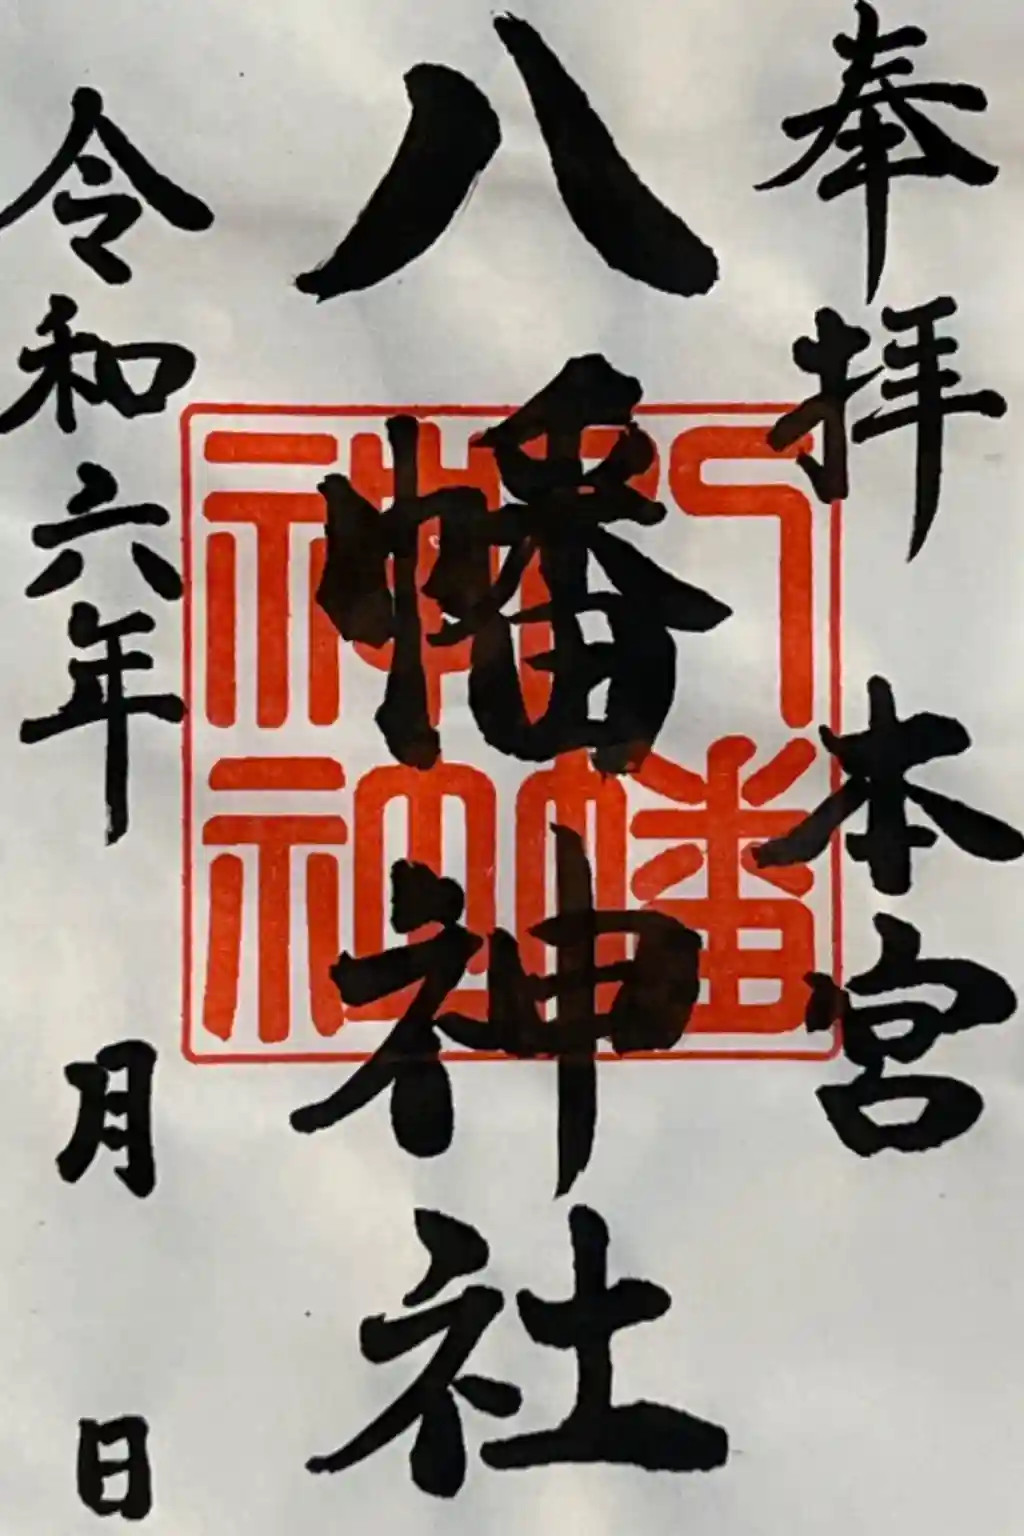 奉拝 本宮
八幡神社
八幡
神社
令和六年 月 日